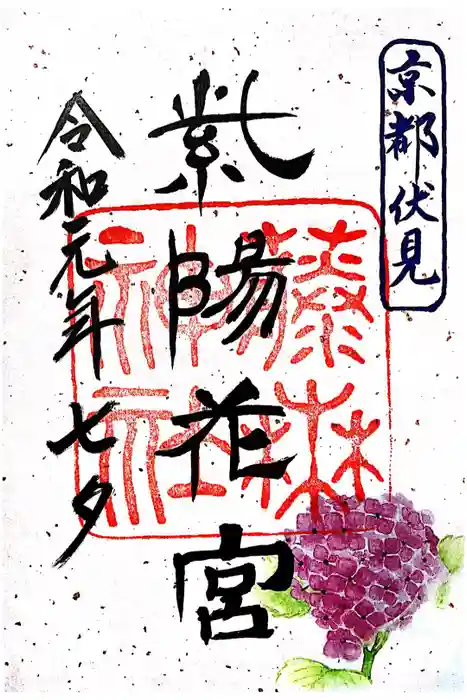 京都伏見
紫陽花宮
藤森神社
令和元年七夕